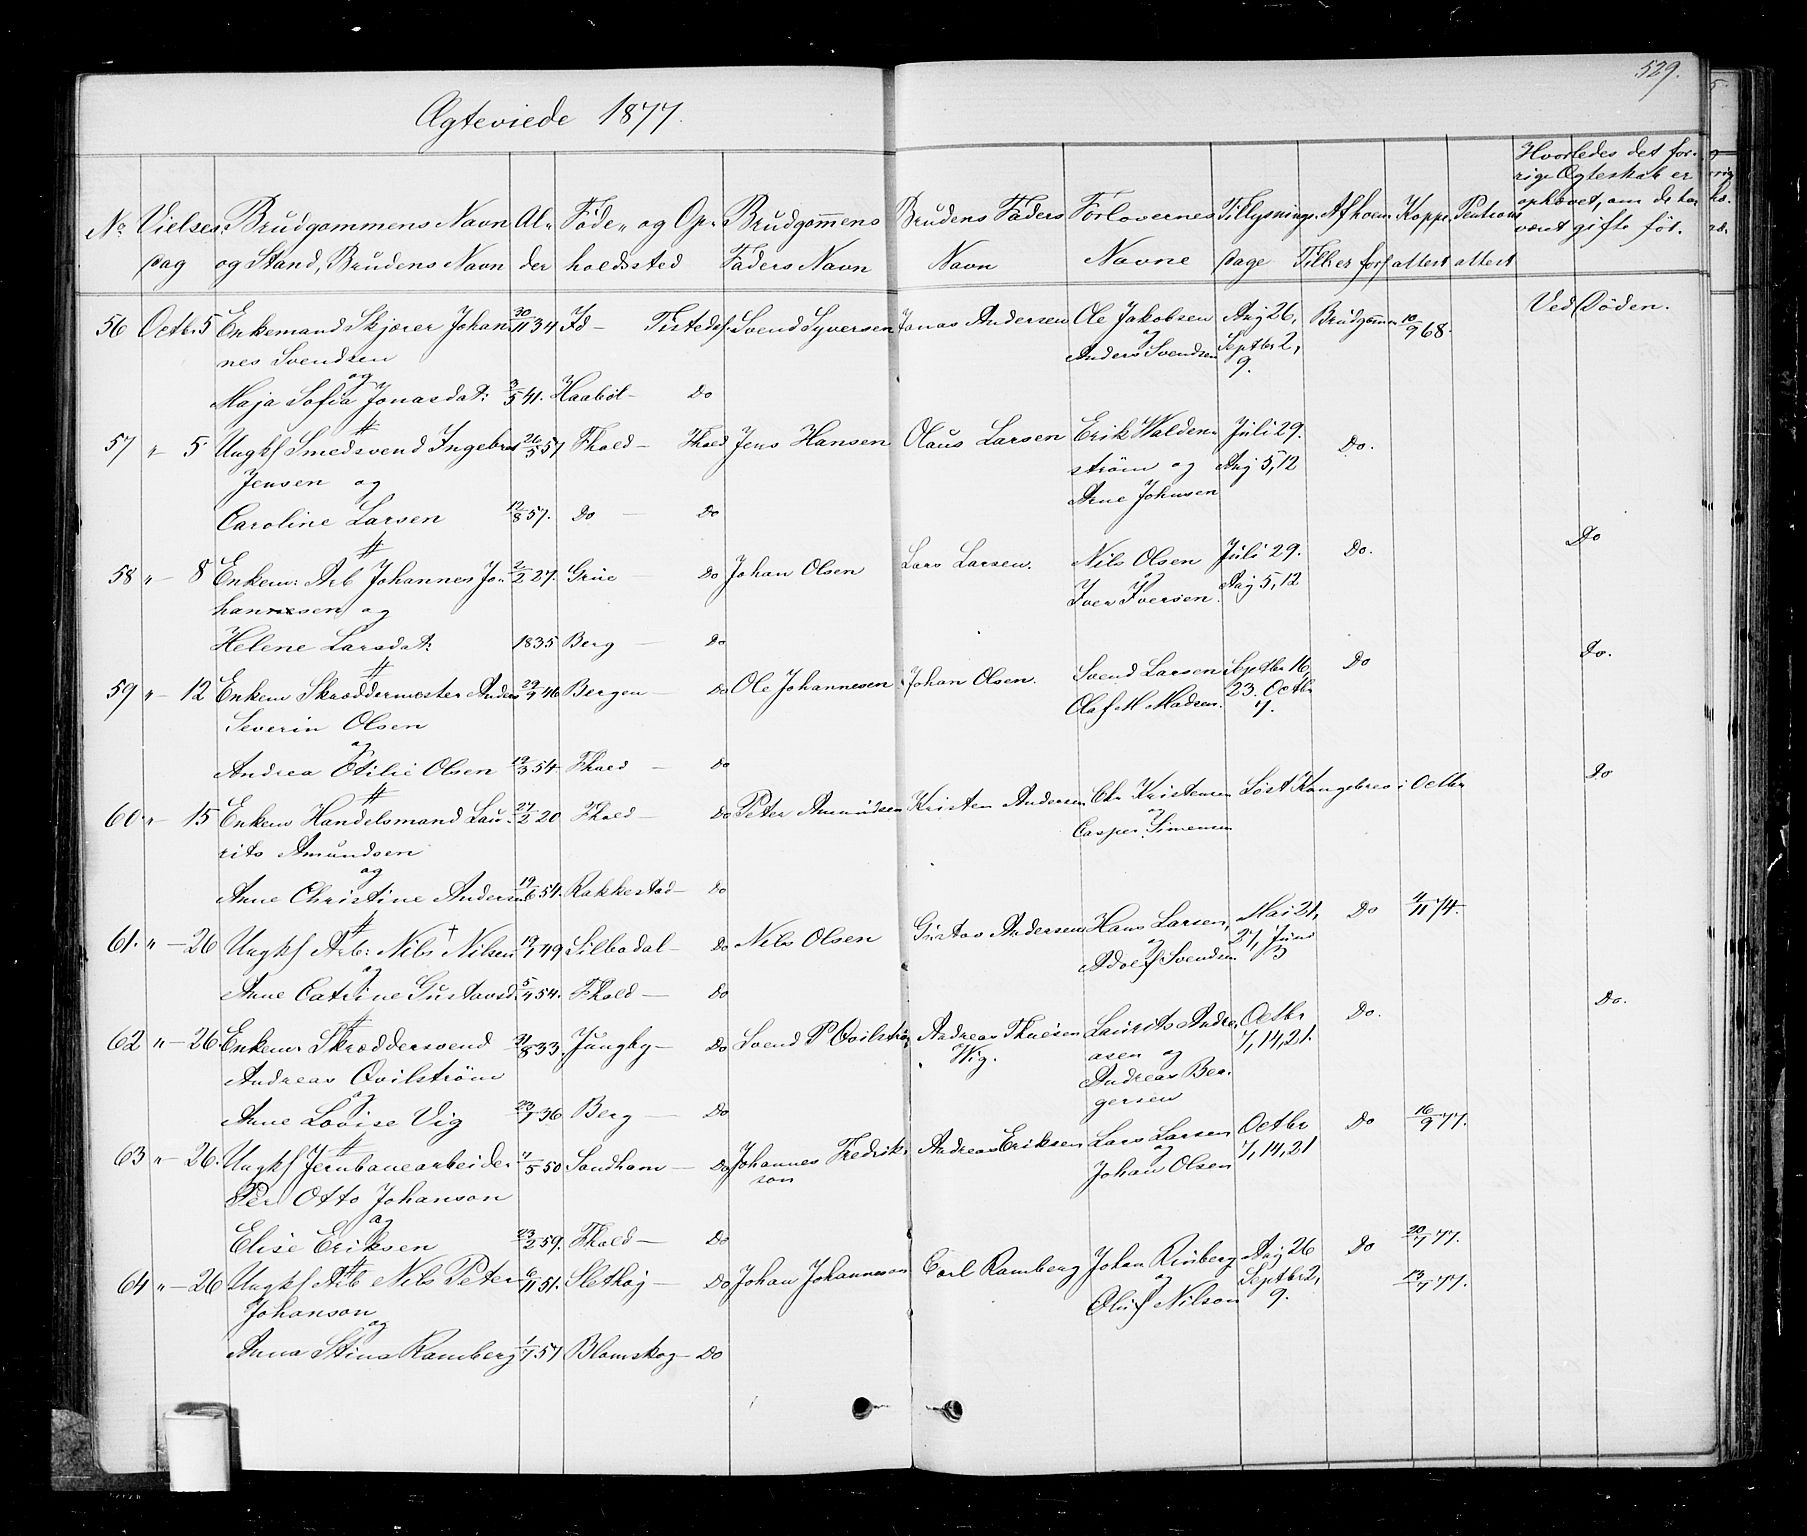 529.
Ægteviede 1877.
No Vielses Dag | Brudgommens Navn og Stand, Brudens Navn | Alder | Føde- og Opholdssted | Brudgommens Faders Navn | Brudens Faders Navn | Forlovernes Navne | Tillysnings Dage | | Koppeattest | | Hvorledes det forrige Ægteskab er ophævet, om de har været gifte før.
56 Octbr. 5 Enkemand Skjærer Johan 30/11 34 Id – Tistedf. Svend Syversen Jonas Andersen Ole Jakobsen Aug 26, Brudgommen 10/9 68. Ved Døden.
nes Svendsen og Anders Svendsen Septbr 2, 9.
og
Maja Sofia Jonasdat: 3/5 41. Haabøl – Do
57 " 5 Ungk Smedsvend Ingebret 26/5 57 Fhald – Fhald Jens Hansen Olaus Larsen Erik Walden- Juli 29. Do.
Jensen og strøm og Aug 5, 12
Arne Johnsen
Caroline Larsen 12/8 57. Do – Do
58 " – 8 Enkem: Arb Johannes Jo- 2/2 27. Grue – Do Johan Olsen Lars Larsen. Nils Olsen Juli 29. Do. Do
hannesen og og Aug 5, 12
Iver Iversen.
Helene Larsdat: 1835 Berg – Do
59 " – 12 Enkem Skræddermester Anders 29/9 46 Bergen – Do Ole Johannesen Johan Olsen. Svend Larsen Septbr 16, Do Do.
Severin Olsen Olaf M Madsen. 23. Octbr 7.
og
Andrea Otilie Olsen 19/3 54 Fhald – Do
60 " – 15 Enkem Handelsmand Lau- 27/2 20 Fhald – Do Peter Amundsen Kristen Andersen Chr Kristensen Løst Kongebrev i Octbr Do
rits Amundsen og
og Casper Simensen
Anne Christine Andersen 19/6 54. Rakkestad – Do
61. " – 26 Ungk Arb: Nils Nilsen 19/1 49 Silbodal – Do Nils Olsen Gustav Andersen Hans Larsen, Mai 21, Do 4/11 74.
og og 27, Juni 3
Adolf Svendsen
Anne Catrine Gustavsd. 5/4 54. Fhald – Do
62 " – 26 Enkem Skræddersvend 21/8 33. Jungby – Do Svend P Qvilström Andreas Thuesen Laurits Andre- Octbr Do. Do.
Andreas Qvilström Wig. asen og 7, 14, 21.
og Andreas Ber-
gersen
Anne Lovise Vig 23/1 36 Berg – Do
63 " – 26. Ungk Jernbanearbeider 4/5 50 Sandhem – Do Johannes Fredrik- Andreas Eriksen Lars Larsen Octbr Do 16/9 77.
Per Otto Johanson son og 7, 14, 21
og Johan Olsen
Elise Eriksen 23/2 59. Fhald – Do
64 " – 26 Ungk Arb Nils Peter 6/11 51. Slethøg – Do Johan Johanneson Carl Ramberg Johan Rinberg Aug 26 Do 20/7 77.
Johanson og Septbr 2, 13/7 77.
og Oluf Nilson 9.
Anna Stina Ramberg 1/7 57 Blomskog – Do